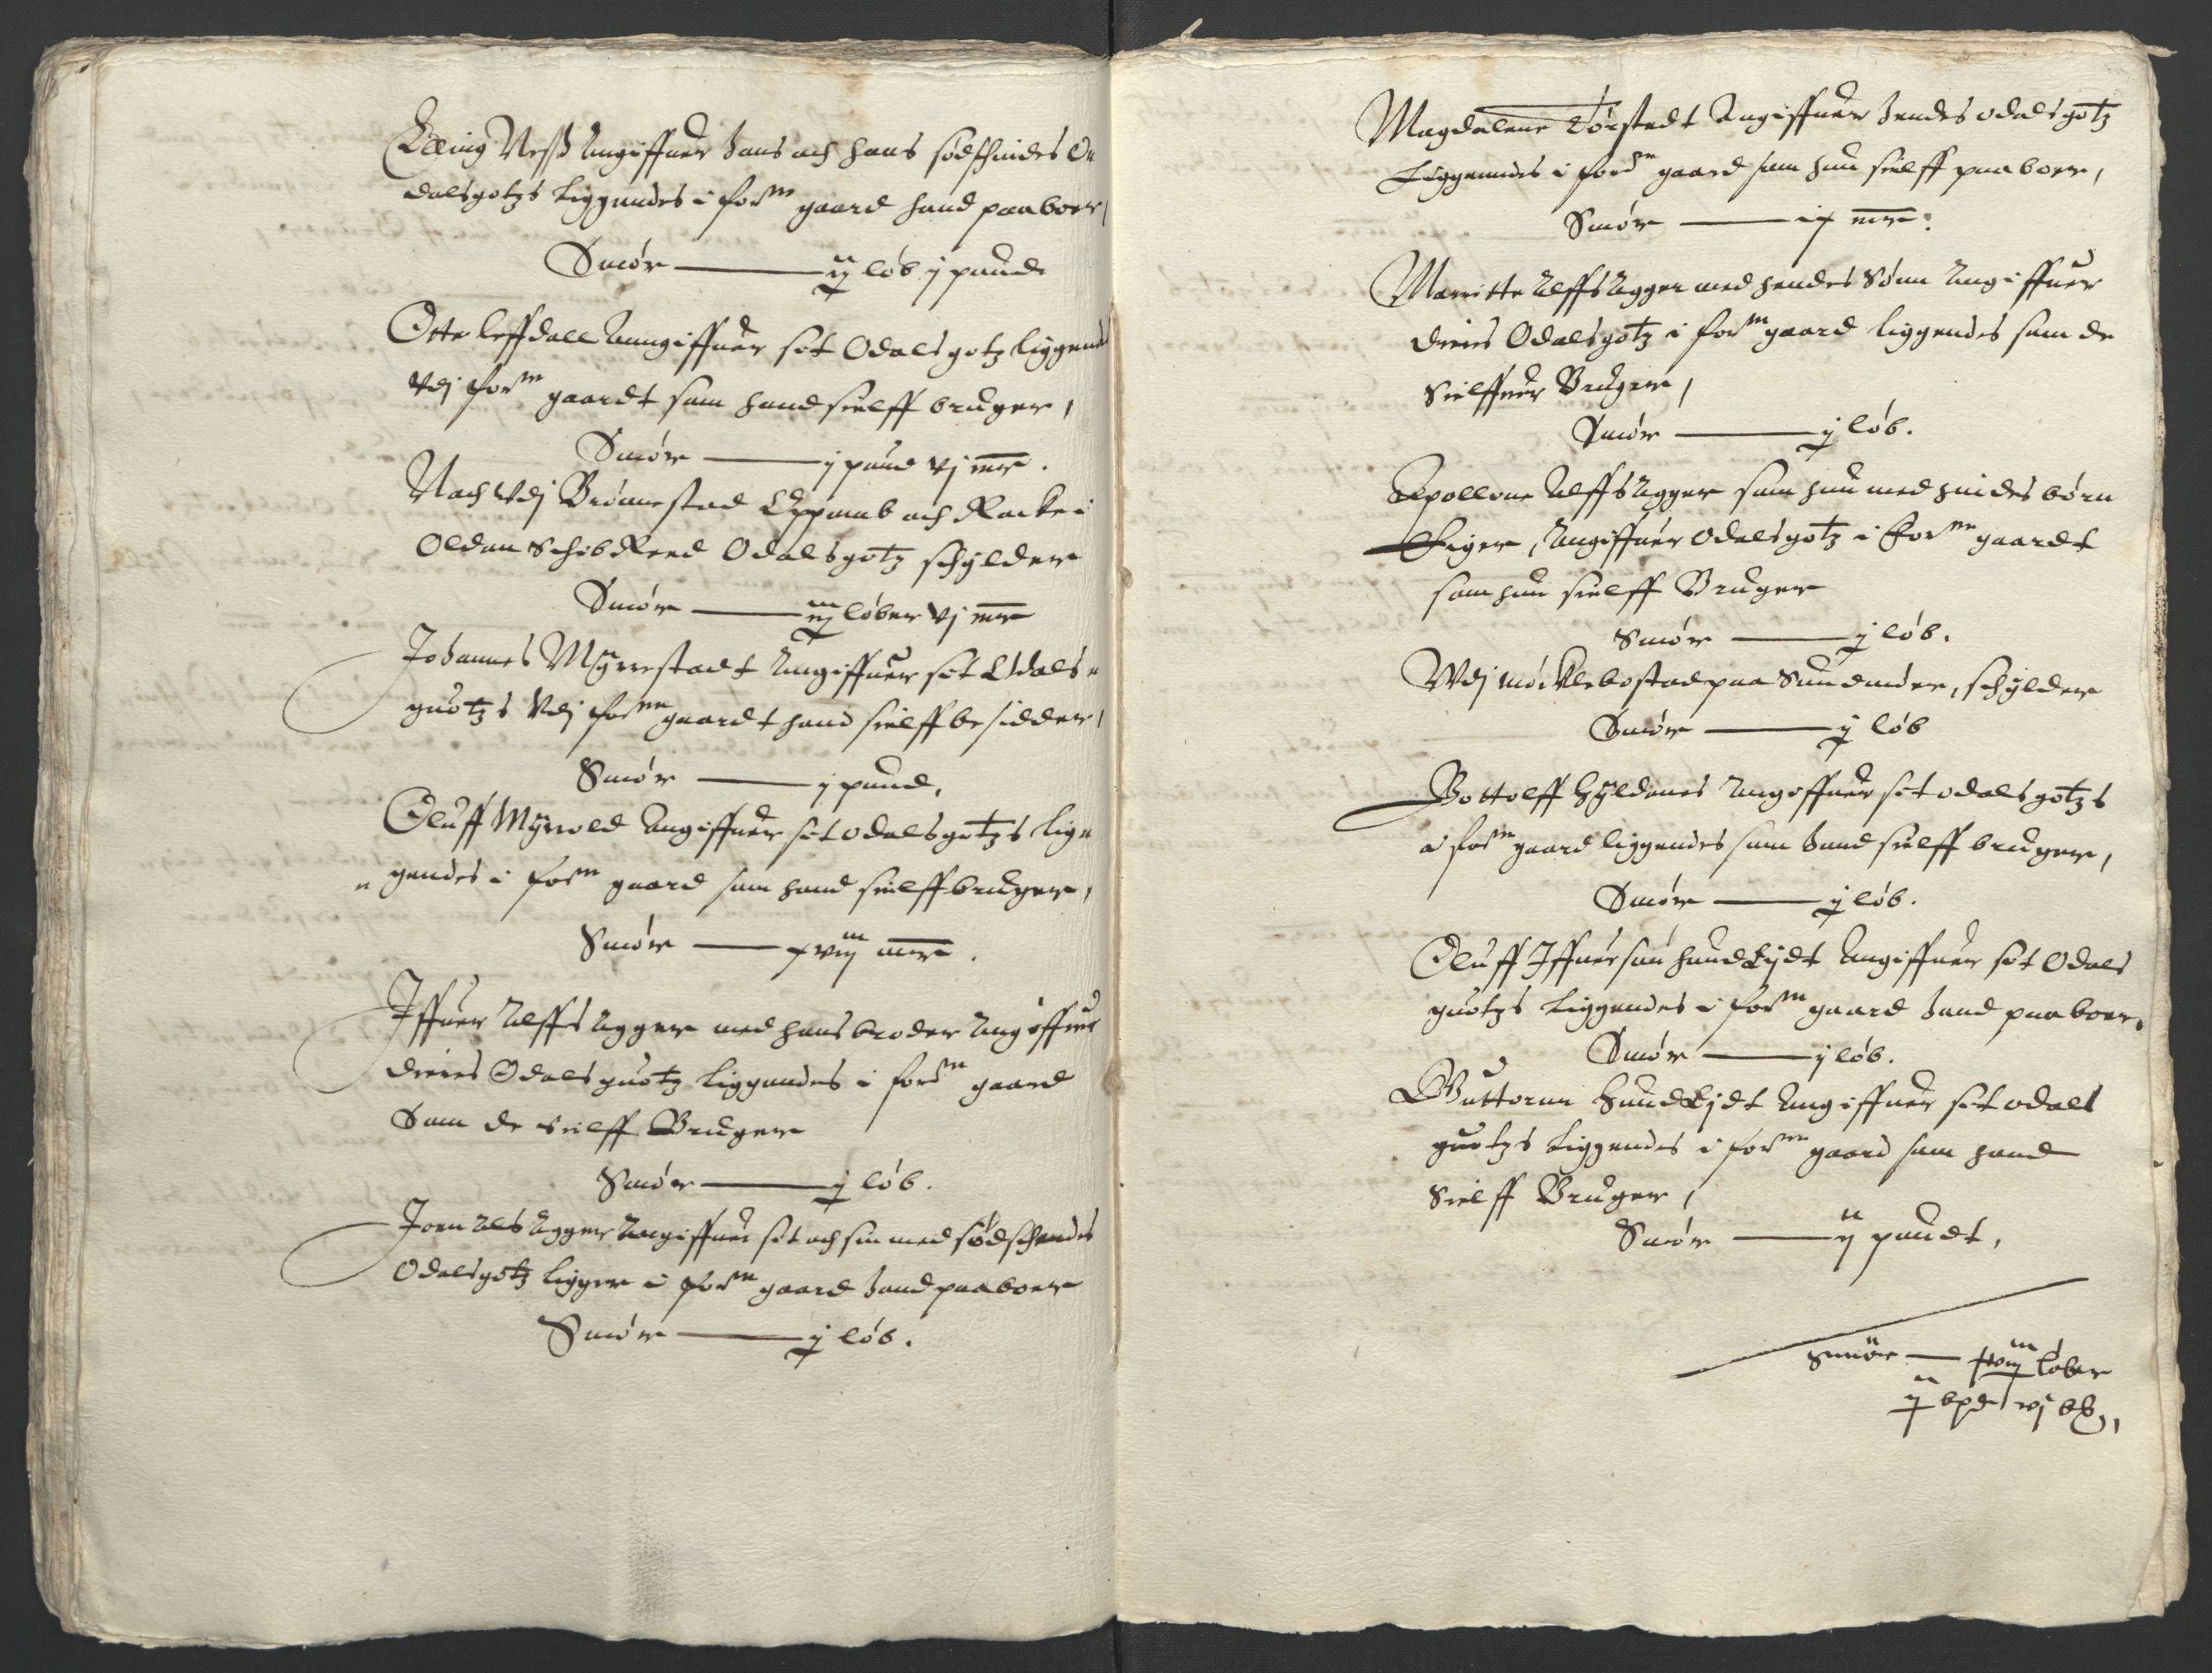 Elling Neſß Angiffuer hans och hans södschindes O-
dalsgotzs liggendes i forne gaard hand paaboer,
Smör —— ij löb j pund
Otte Leffdall Anngiffuer sit Odalsgotz liggend
Vdj forne gaardt som hand sielff bruger,
Smör —— j pund vj mrk.
Nach Vdj Brömestad och Racke i
Olden Schibreed Odalsgotz schylder
Smör —— löber vj mrk
Johannes Myrestadt Angiffuer sit Odals-
guotzs Vdj forne gaardt hand sielff besidder,
Smör —— j pund,
Oluff Myrold Angiffuer sit odalsgotzs lig-
gendes i forne gaard som hand sielff bruger,
Smör —— xviij mrk.
Iffuer Alffs Agger med hans broder Angiffuer
dieris Odalsguotz liggendes i forne gaard
Som de sielff Bruger
Smör —— löb.
Joen Als Agger Angiffuer sit och sin med södschendes
Odalsgotz ligger i forne gaard hand paaboer
Smör —— löb.
Magdalene Torstedt Angiffuer hendes odalsgotz
Liggenndes i forne gaard som hun sielff paaboer,
Smör —— ix mrk.
Marritte Alffs Agger med hendes Sönn Angiffuer
dieris Odalsgotz i forne gaard liggendes som de
Sielffuer Bruger,
Smör —— löb.
Apollone Alffs Agger som hun med hindes börn
Eiger, Angiffuer Odalsgotz i forne gaardt
som hun sielff Bruger
Smör —— löb.
Wdj Möcklebostad paa Sundmöer, schylder
Smör —— löb
Bottolff Hyldenes Angiffuer sit odalsgotzs
i forne gaard liggendes som hand sielff bruger,
Smör —— löb.
Oluff Iffuersön hundEjdt Angiffuer sit Odals
guotzs liggendes i forne gaard hand paaboer.
Smör —— j löb.
Guttorm HundEjdt Angiffuer sit odals
guotzs liggendes i forne gaard som hand
Sielff Bruger,
Smör —— ij pundt,
Smör — löber
bpd vj